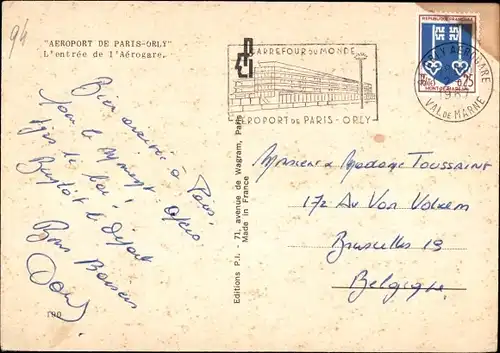 94
"AEROPORT DE PARIS-ORLY"
L'entrée de l'Aérogare.
CARREFOUR DU MONDE
AEROPORT DE PARIS - ORLY
REPUBLIQUE FRANÇAISE
0,25
MONT-DE-MARSAN
ORLY AEROGARE
VAL DE MARNE
Bien arrivée à Paris,
pour le moment
Bientôt le départ
Bons Baisers
190
Editions P.I. - 71, avenue de Wagram, Paris
Made in France
Monsieur & Madame TOUSSAINT
172 Av Von Volxem
Bruxelles 19
Belgique